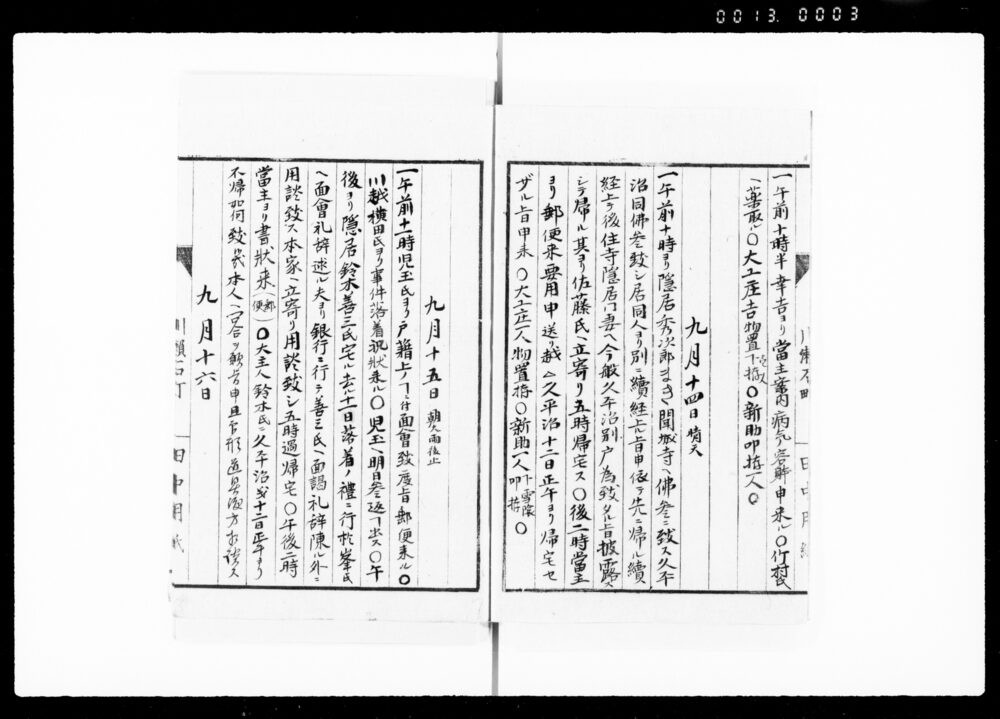 0013. 0003
一午前十時半幸吉ヨリ當主室内病気容躰申来ル〇竹村氏
ヘ薬取ル〇大工庄吉物置下拵〇新助叩拵一人〇
九月十四日 晴天
一午前十時ヨリ隠居秀次郎まき聞城寺ヘ佛参ニ致ス久平
治同佛参致シ居同人ヨリ別ニ續経上ル旨申依テ先ニ帰ル續
経上テ後住寺隠居門妻ヘ今般久平治別戸為致タル旨披露ス
シテ帰ル其ヨリ佐藤氏ヘ立寄リ五時帰宅ス〇後二時當主
ヨリ郵便来要用申送リ越ス久平治十二日正午ヨリ帰宅セ
ザル旨申来〇大工庄一人物置拵〇新助一人叩拵〇
九月十五日 朝雨後止
一午前十一時児玉氏ヨリ戸籍上ノ ニ付面會致度旨郵便来ル〇
川越横田氏ヨリ事件落着祝状来ル〇児玉ヘ明日参返 出ス〇午
後ヨリ隠居鈴木善三氏宅ル去十一日落着ノ禮ニ行於峯氏
ヘ面會礼辞述ル夫ヨリ銀行ニ行テ善三氏ヘ面謁礼辞陳ル外ニ
用談致ス本家ヘ立寄リ用談致シ五時過帰宅〇午後二時
當主ヨリ書状来(郵便)〇大主人鈴木氏ニ久平治 十二日正午ヨリ
不帰如何致 本人ヘ 合 申旦 形道具 方 談ス
九月十六日
川瀬石町
田中用紙